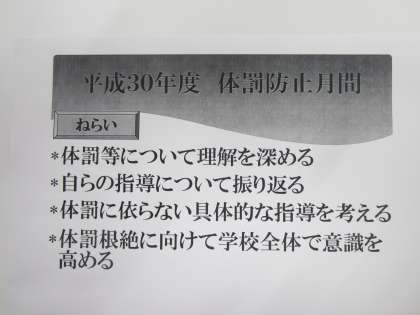 平成30年度 体罰防止月間
ねらい
*体罰等について理解を深める
*自らの指導について振り返る
*体罰に依らない具体的な指導を考える
*体罰根絶に向けて学校全体で意識を
高める